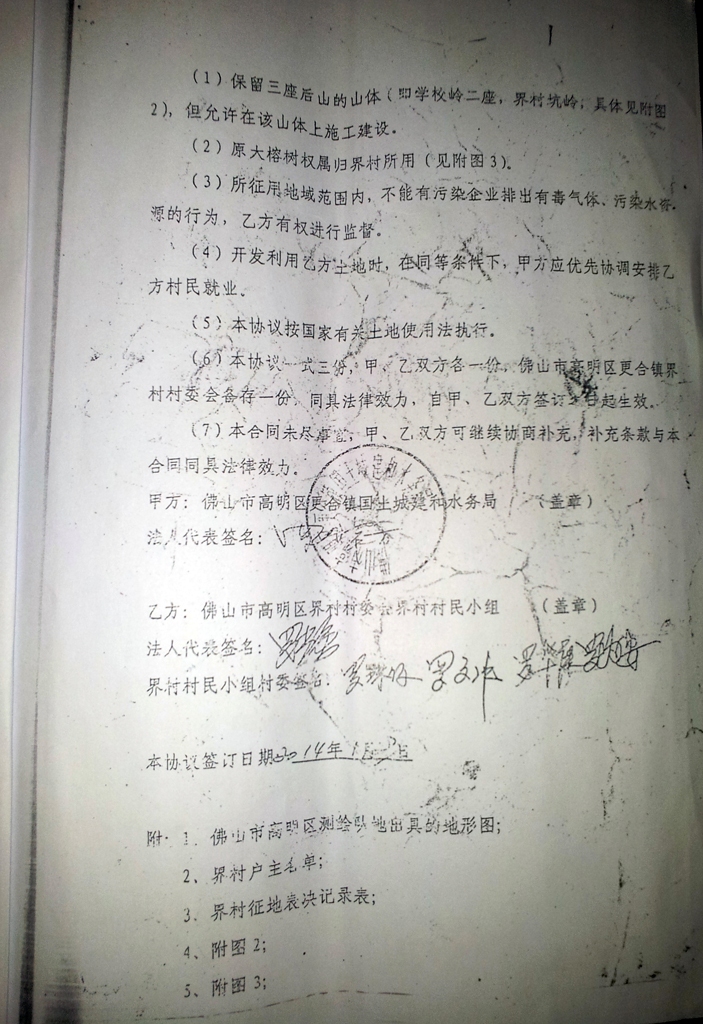 (1)保留三座后山的山体(即学校岭二座,界村坑岭,具体见附图
2),但允许在该山体上施工建设。
(2)原大榕树权属归界村所用(见附图3)。
(3)所征用地域范围内,不能有污染企业排出有毒气体、污染水资
源的行为,乙方有权进行监督。
(4)开发利用乙方土地时,在同等条件下,甲方应优先协调安排乙
方村民就业。
(5)本协议按国家有关土地使用法执行。
(6)本协议一式三份,甲、乙双方各一份,佛山市高明区更合镇界
村村委会备存一份,同具法律效力,自甲、乙双方签订之日起生效。
(7)本合同未尽事宜,甲、乙双方可继续协商补充,补充条款与本
合同同具法律效力。
甲方:佛山市高明区更合镇国土城建和水务局 (盖章)
法人代表签名:
乙方:佛山市高明区界村村委会界村村民小组 (盖章)
法人代表签名:
界村村民小组村委签名:
本协议签订日期2014年1月 日
附:1、佛山市高明区测绘队地出具的地形图;
2、界村户主名单;
3、界村征地表决记录表;
4、附图2;
5、附图3;